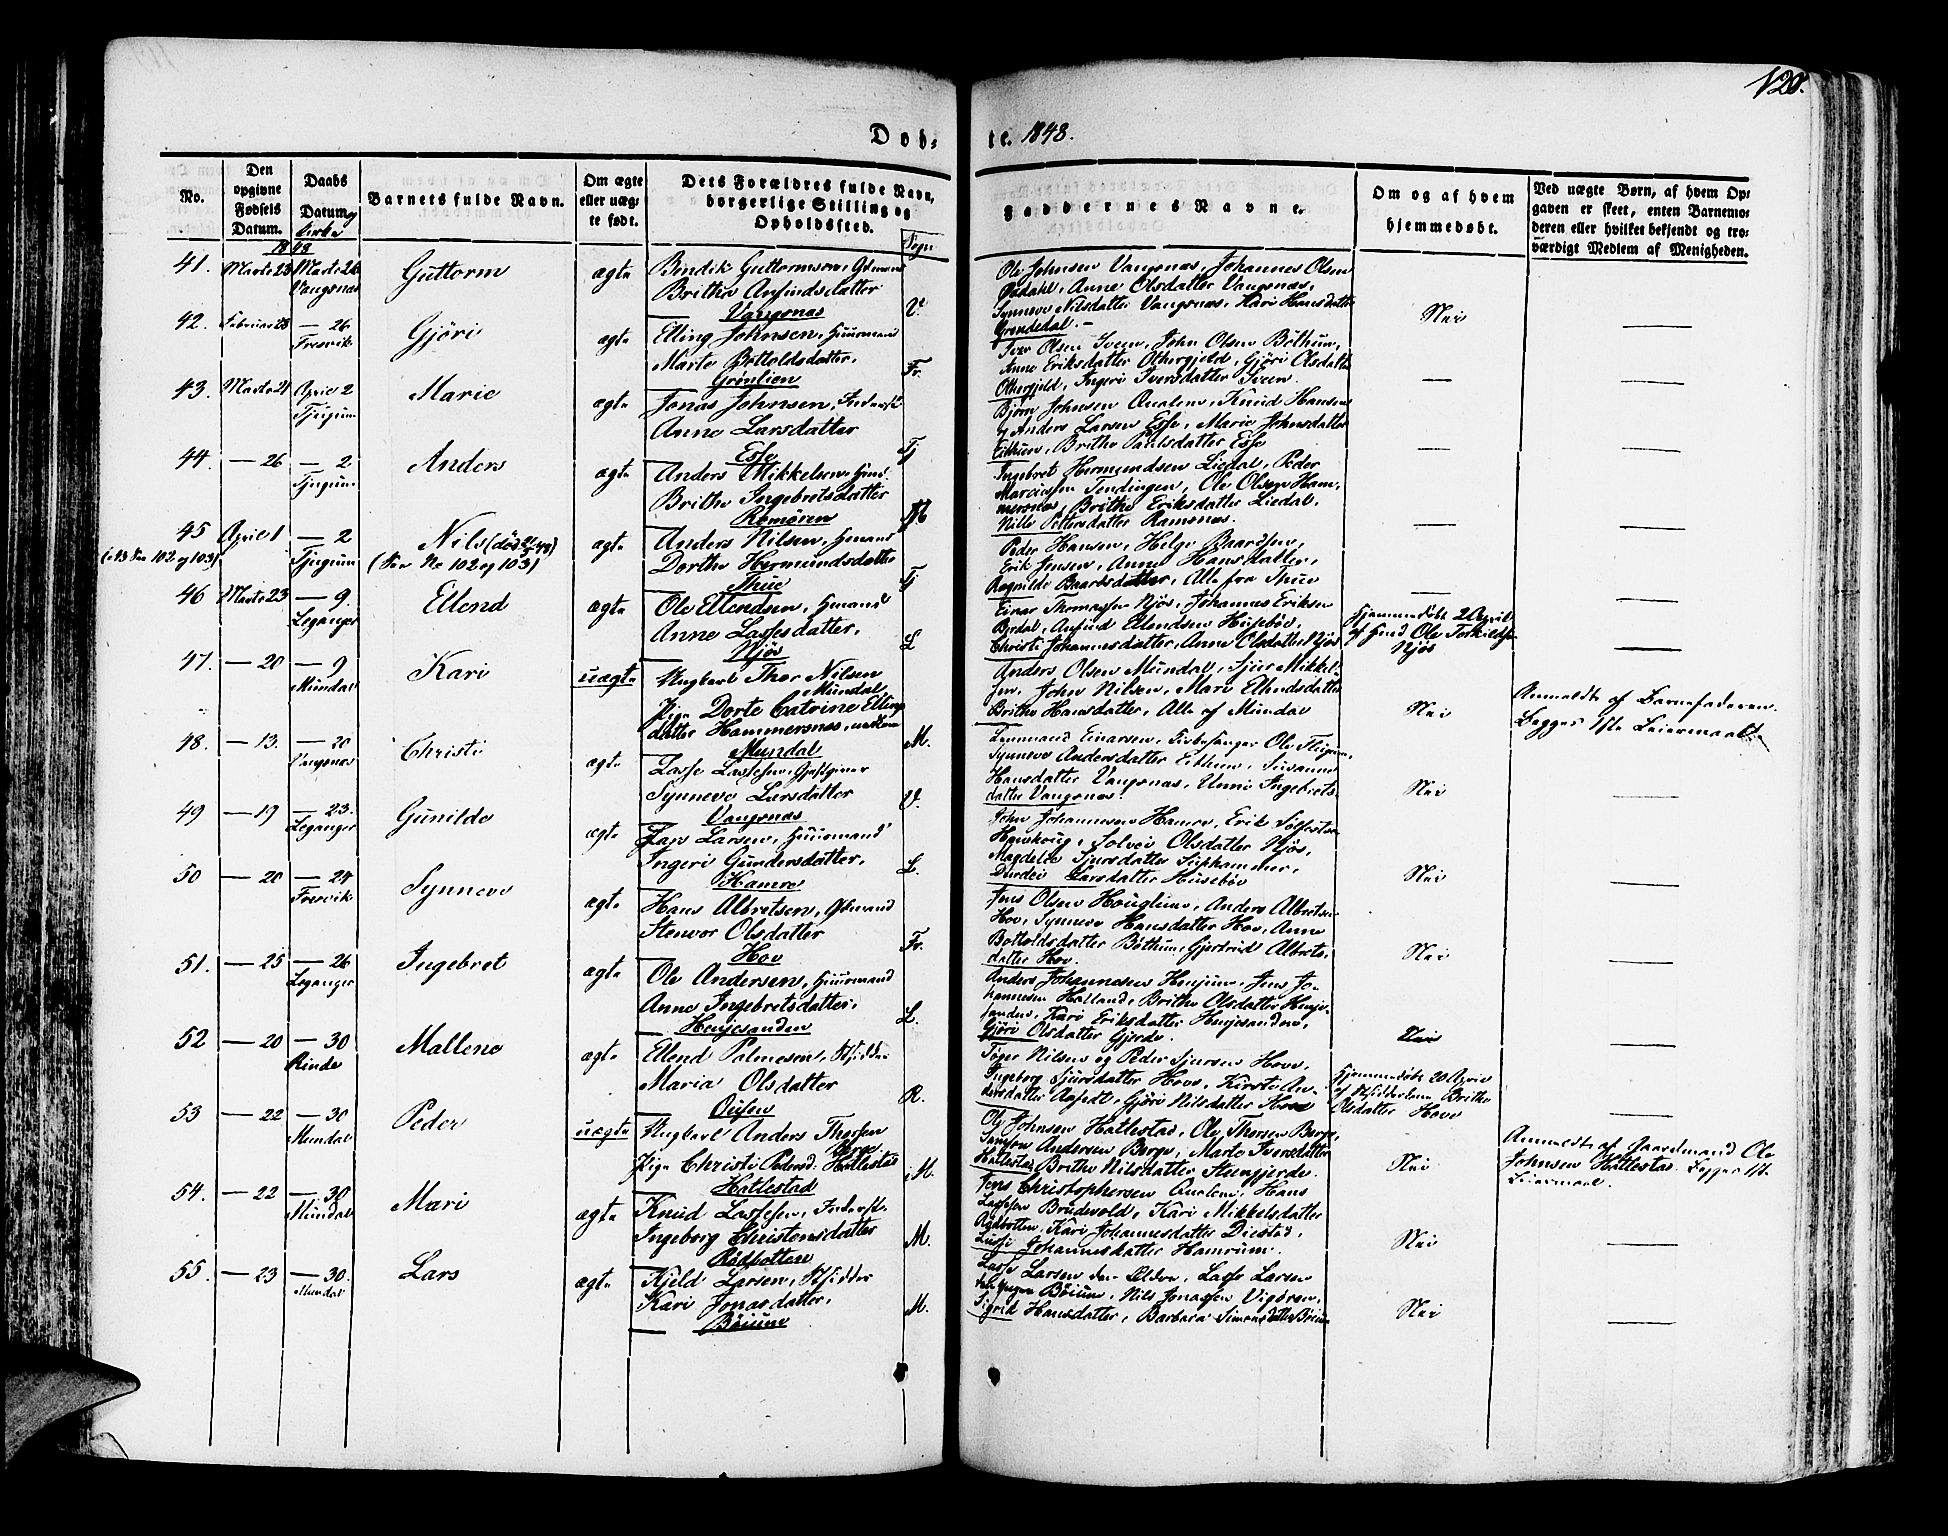 128.
Døb- te. 1848.
No.
Den opgivne Fødsels Datum.
Daabs Datum og Kirke
Barnets fulde Navn.
Om ægte eller uægte født.
Dets Forældres fulde Navn, borgerlige Stilling og Opholdssted.
Sogn
Faddernes Navne.
Om og af hvem hjemmedøbt.
Ved uægte Børn, af hvem Opgaven er skeet, enten Barnemoderen eller hvilket bekjendt og troværdigt Medlem af Menigheden.
1848
41. Marts 23 Marts 26 Vangsnæs Guttorm ægte
Bendik Guttormsen, Gdmand
Brithe Anfindsdatter
Vangsnæs V.
Ole Johnsen Vangsnæs, Johannes Olsen
Opdahl, Anne Olsdatter Vangsnæs,
Synneve Nilsdatter Vangsnæs, Kari Hansdatter
Grøndedal.
Nei
42. Februar 28 — 26 Fresvik Gjøri ægte
Elling Johnsen, Huusmand
Marte Botholdsdatter,
Grønlien Fr.
Iver Olsen Sveen, John Olsen Bøthun,
Anne Eriksdatter Othergjeld, Gjøri Olsdatter
Othergjeld, Ingeri Iversdatter Sveen.
—
43. Marts 21 April 2 Tjugum Marie ægte
Jonas Johnsen, Inderst
Anne Larsdatter
Esse Tj
Bjørn Johnsen Qualem, Knud Hansen
og Anders Larsen Esse, Marie Johnsdatter
Eithun, Brithe Paulsdatter Esse
—
44. — 26 — 2 Tjugum Anders ægte
Anders Mikkelsen, Huusm.
Brithe Ingebretsdatter
Romøren
Ingebret Hermundsen Liedal, Peder
Marcussen Tendingen, Ole Olsen Hammersnæs, Brithe Eriksdatter Liedal,
Nille Pettersdatter Ramsnæs.
—
45 April 1 — 2 Tjugum Nils (død 21/5 48) ægte
(i 13 See 102 og 103) (See No 102 og 103)
Anders Nilsen, Husmand
Dorthe Hermundsdatter
Thue Tj
Peder Hansen, Helge Baardsen,
Erik Jensen, Anne Hansdatter,
Ragnilde Baardsdatter, Alle fra Thue
—
46 Marts 23 — 9. Leganger Ellend ægte
Ole Ellendsen, Husmand
Anne Lassesdatter,
Njøs L
Einar Thomassen Njøs, Johannes Eriksen
Birdal, Anfind Ellendsen Husebøe,
Christi Johannesdatter, Anne Olsdatter Njøs
Hjemmedøbt 2 April
af Husmd Ole Torkildsen
Njøs
47. — 20 — 9 Mundal Kari uægte
Ungkarl Thor Nilsen
Mundal
Pige Dorte Catrine Ellingsdatter Hammersnæs,
Mundal M.
Anders Olsen Mundal, Sjur Mikkelsen, John Nilsen, Mari Ellendsdatter
Brithe Hansdatter, Alle af Mundal
Nei
Anmeldt af Barnefaderen.
Begges 1ste Leiermaal
48. — 13. — 20 Vangsnæs Christi ægte
Lasse Lassesen, Gjestgiver
Synneve Larsdatter
Vangsnæs V.
Einarsen, Kirkesanger Ole
Synneve Andersdatter Eithun, Susanne
Hansdatter Vangsnæs, Unni Ingebretsdatter Vangsnæs.
Nei
49 — 19 — 23. Leganger Gunilde ægte
Lars Larsen, Huusmand
Ingeri Gundersdatter,
Hamre L.
John Johannesen Hamre, Erik
Henskoug, Solvei Olsdatter Njøs,
Magdele Sjursdatter
Durdei Larsdatter Husebøe
Nei
50 — 20 — 24 Fresvik Synneve ægte
Hans Albretsen, Gdmand
Stenvor Olsdatter
Hov Fr.
Jens Olsen Houglum, Anders Albretsen
Hov, Synneve Hansdatter Hov, Anne
Botholdsdatter Bøthun, Gjertrud Albretsdatter Hov.
Nei
51. — 25 — 26 Leganger Ingebret ægte
Ole Andersen, Huusmand
Anne Ingebretsdatter,
Henjesanden L.
Anders Johannesen Henjum, Jens Johannesen Hatland, Brithe Olsdatter Henjesanden, Kari Eriksdatter Henjesanden,
Gjøri Olsdatter Gjerde.
Nei
52 — 20 — 30 Rinde Mallene ægte
Ellend Palmesen, Selsidder
Maria Olsdatter
R.
Tøger Nilsen og Peder Sjursen Hove,
Ingeborg Sjursdatter Hove, Kirsti Andersdatter Aafedt, Gjøri Nilsdatter Hove
Hjemmedøbt 20 April
Brithe
Olsdatter Hove
53 — 22 — 30 Mundal Peder uægte
Ungkarl Anders Thorsen
Berge
Pige Christi Pedersd. Hatlestad
Hatlestad M.
Ole Johnsen Hatlestad, Ole Thorsen Berge,
Andersen Berge, Marte Iversdatter
Hatlestad, Brithe Nilsdatter Steengjerde.
Nei
Anmeldt af Gaardmand Ole
Johnsen Hatlestad. Begges 1ste
Leiermaal.
54. — 22 — 30 Mundal Mari ægte
Knud Lassesen, Inderst.
Ingeborg Christensdatter
Rødbotten M.
Jens Christophersen Qualem, Hans
Lassesen Brudevold, Kari Mikkelsdatter
Rødbotten, Kari Johannesdatter Distad,
Lussi Johannesdatter Hamrum.
Nei
55. — 23 — 30. Mundal Lars ægte
Kjeld Larsen, Selsidder
Kari Jonasdatter,
Bøium M.
Lasse Larsen den Eldre, Lasse Larsen
den Yngre Bøium, Nils Jonassen Vigøren,
Sigrid Hansdatter, Barbara Simonsdatter Bøium
Nei